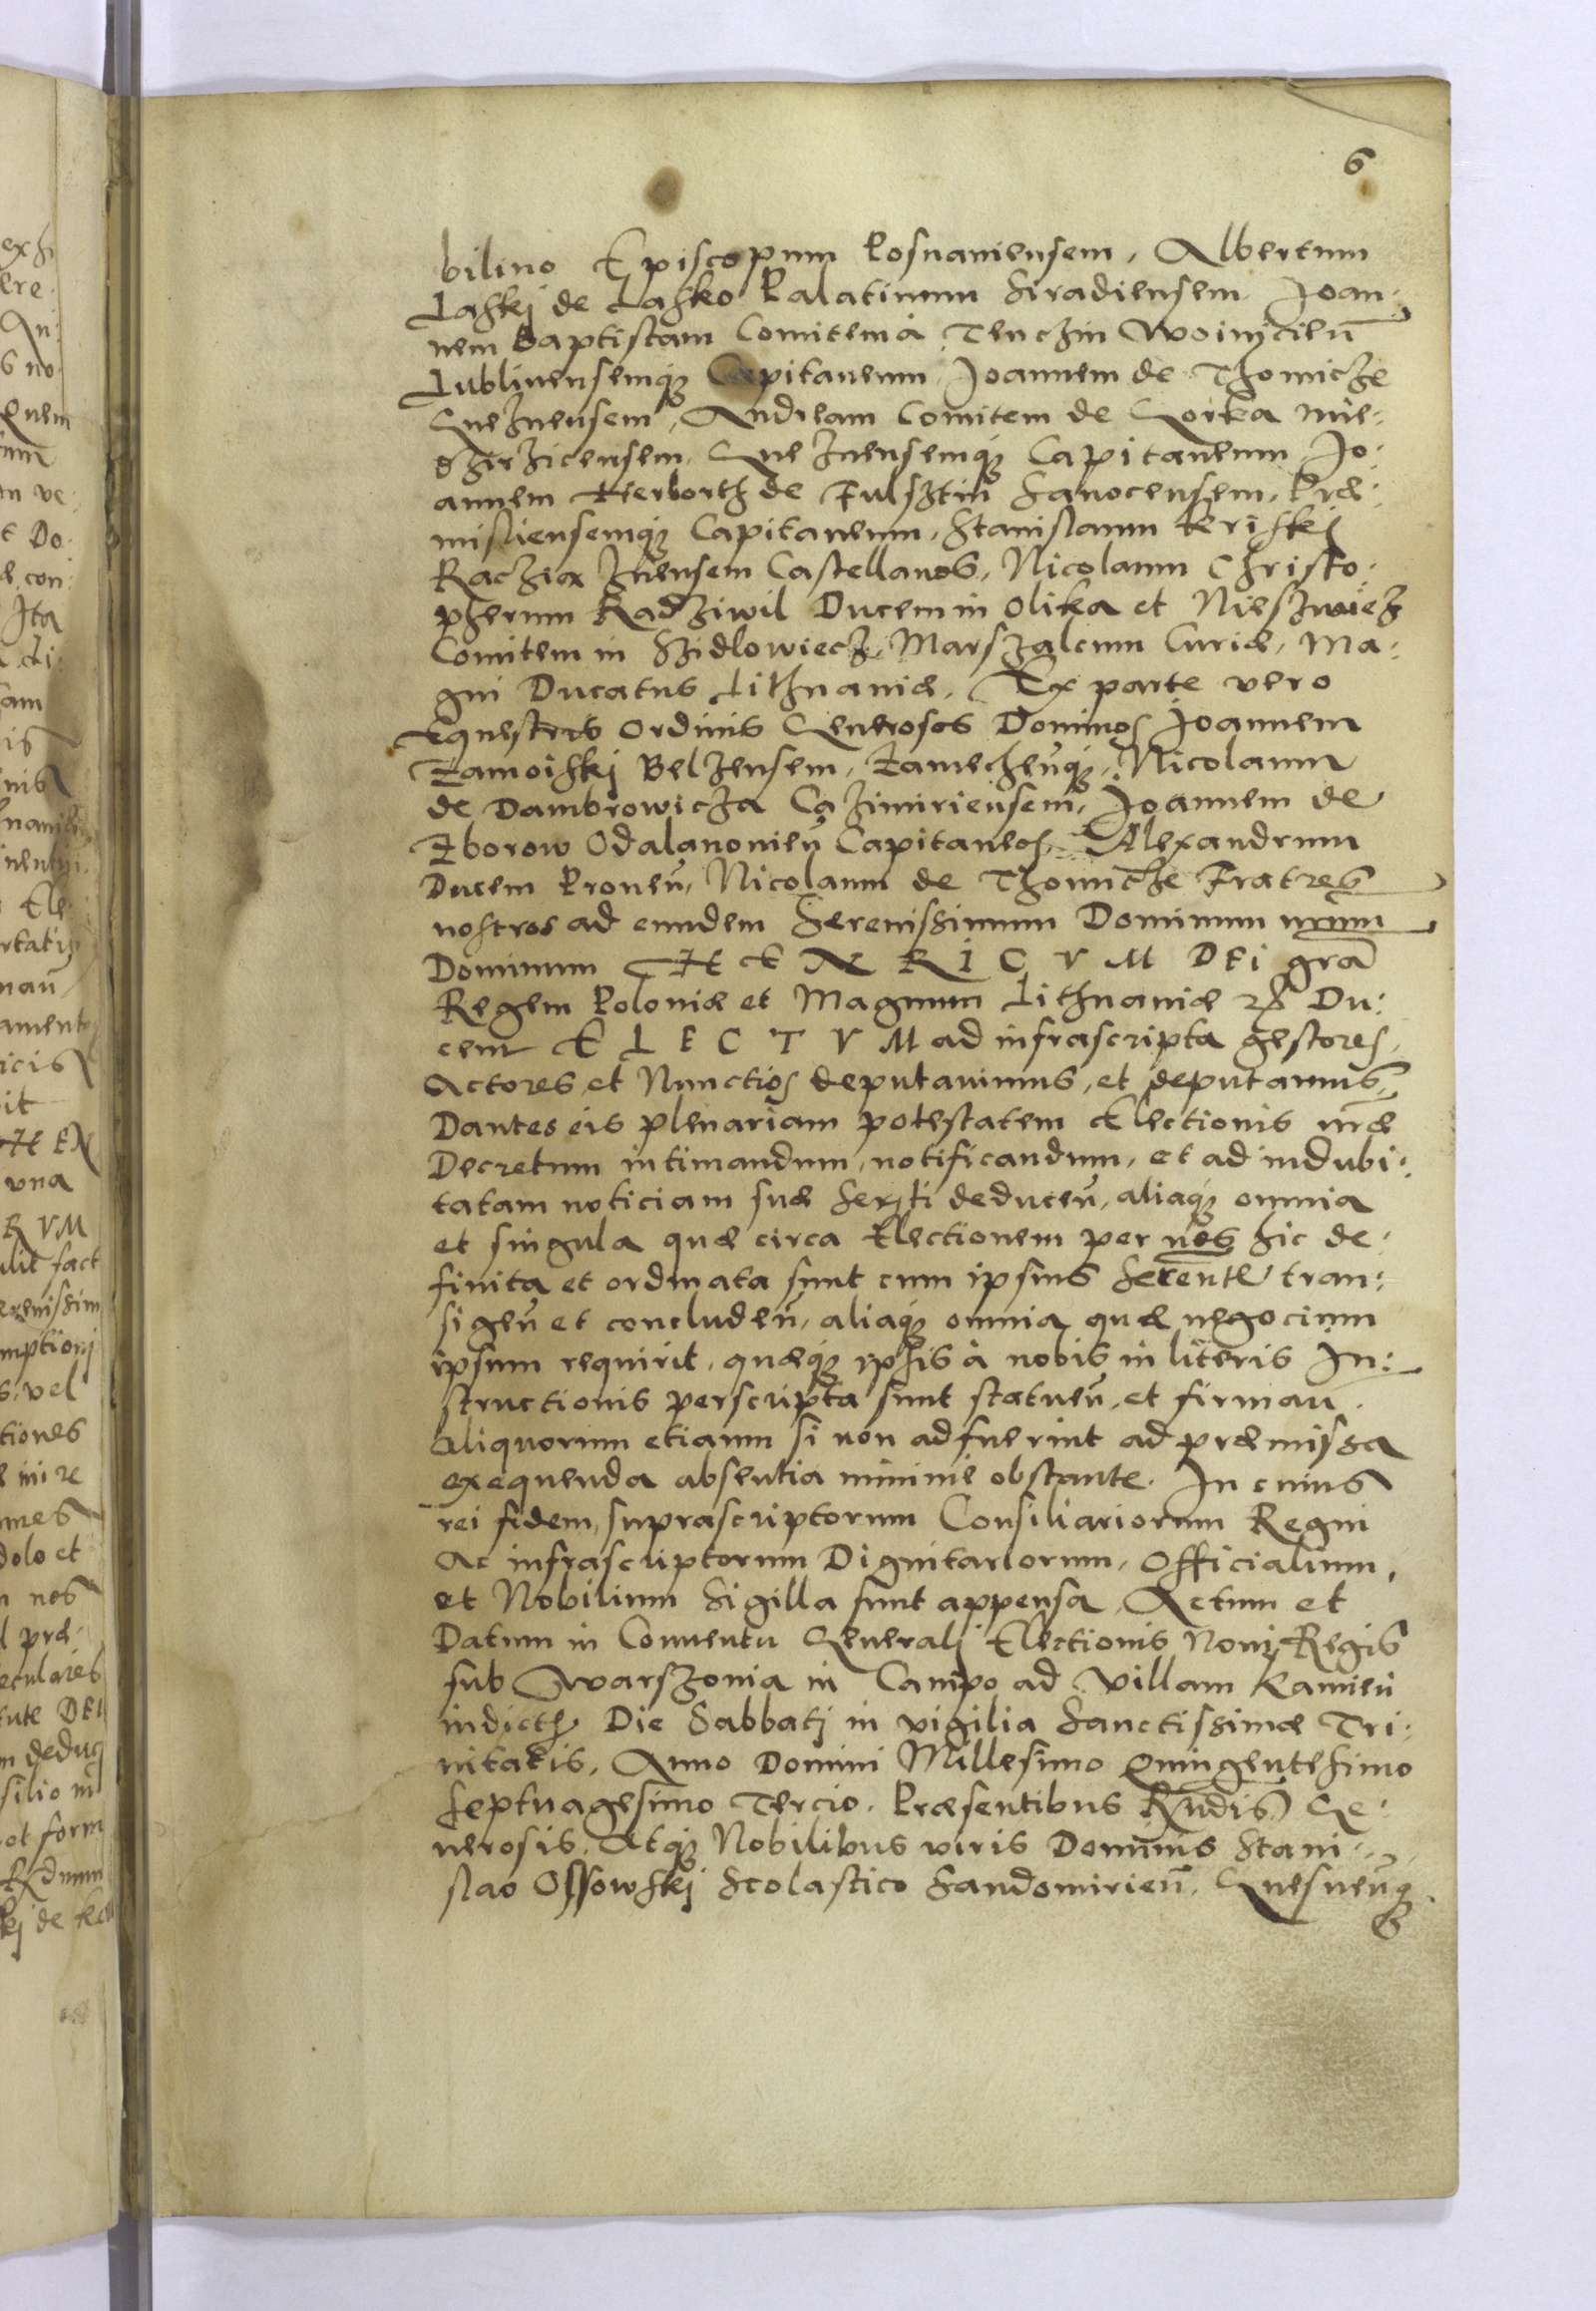 6
bilino Episcopum Posnaniensem, Albertum
Laskj de Lasko Palatinum Siradiensem, Joan:
nem Baptistam Comitem à Tenczin Woinicień
Lublinensemq; Capitaneum, Joannem de Thomicze
Gneznensem, Andream Comitem de Gorka Mie:
dzirzicensem, Gneznensemq; Capitaneum, Jo:
annem Herborth de Fulsztin Sanocensem, Præ:
misliensemq; Capitaneum, Stanislaum Kriskj
Racziąznensem Castellanos, Nicolaum Christo:
pherum Radziwil Ducem in Olika et Nieszwiez
Comitem in Szidlowiecz, Marszalcum Curiæ, Ma:
gni Ducatus Lithuaniæ, Ex parte vero
Equestris Ordinis Generosos Dominos Joannem
Zamoiskj Belzensem, Zamecheńq;, Nicolaum
de Dambrowicza Cazimiriensem, Joannem de
Zborow Odalanonień Capitaneos, Alexandrum
Ducem Proneń, Nicolaum de Thomicze Fratres
nostros ad eundem Serenissimum Dominum nrum
Dominum HENRICVM DEI gra
Regem Poloniæ et Magnum Lithuaniæ &c Du:
cem ELECTVM ad infrascripta gestores,
Actores et Nunctios deputauimus, et deputamus,
Dantes eis plenariam potestatem Electionis nræ
Decretum intimandum, notificandum, et ad indubi:
tatam noticiam suæ Serti deduceń, aliaq; omnia
et singula quæ circa Electionem per nos hic de:
finita et ordinata sunt cum ipsius Serente tran:
sigeń et concludeń, aliaq; omnia quæ negocium
ipsum requirit, quæq; ipsis à nobis in literis In:
structionis perscripta sunt statueń, et firmań.
Aliquorum etiam si non adfuerint ad præmissa
exequenda absentia minime obstante. In cuius
rei fidem, suprascriptorum Consiliariorum Regni
Ac infrascriptorum Dignitariorum, Officialium,
et Nobilium Sigilla sunt appensa, Actum et
Datum in Conuentu Generalj Electionis Noui Regis
sub Warszouia in Campo ad villam Kamień
indicth, Die Sabbatj in vigilia Sanctissimæ Tri:
nitatis, Anno Domini Millesimo Quingentesimo
Septuagesimo Tercio. Præsentibus Rndis Ge:
nerosis, Atq; Nobilibus viris Dominis Stani:
slao Ossowskj Scolastico Sandomirień, Gnesneńq;